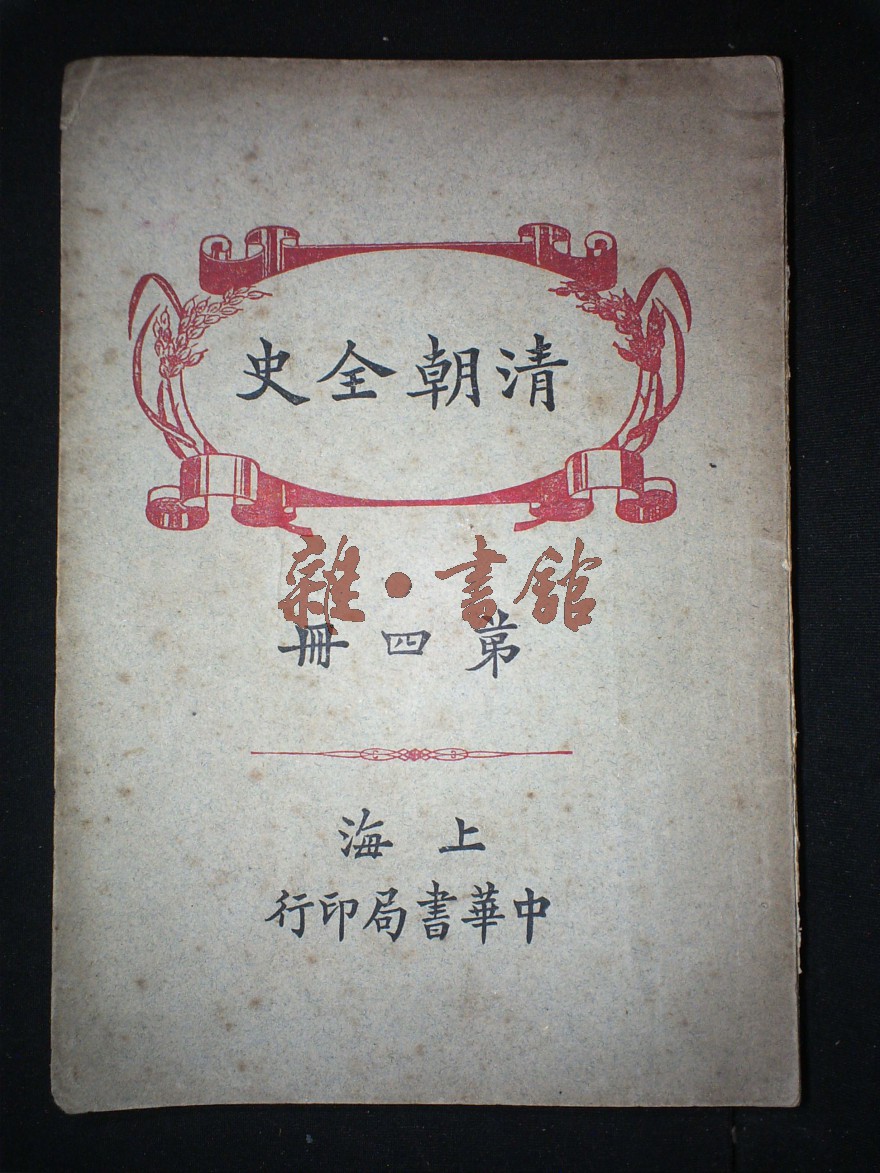 清朝全史
雜·書館
第四冊
上海
中華書局印行